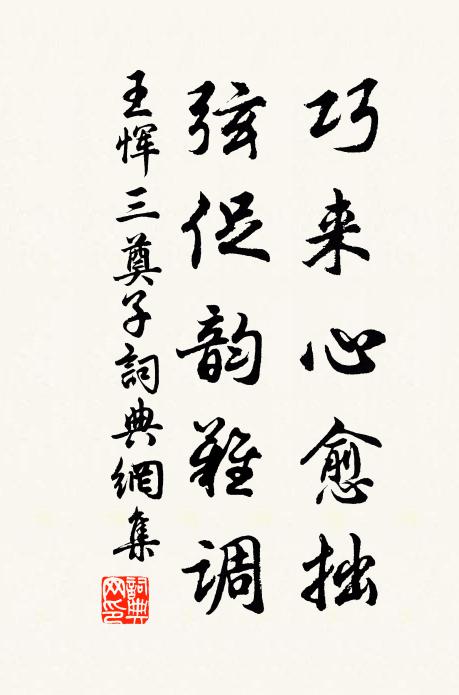 巧来心愈拙
弦促韵难调
王恽三奠子詞典網集
詞典网印